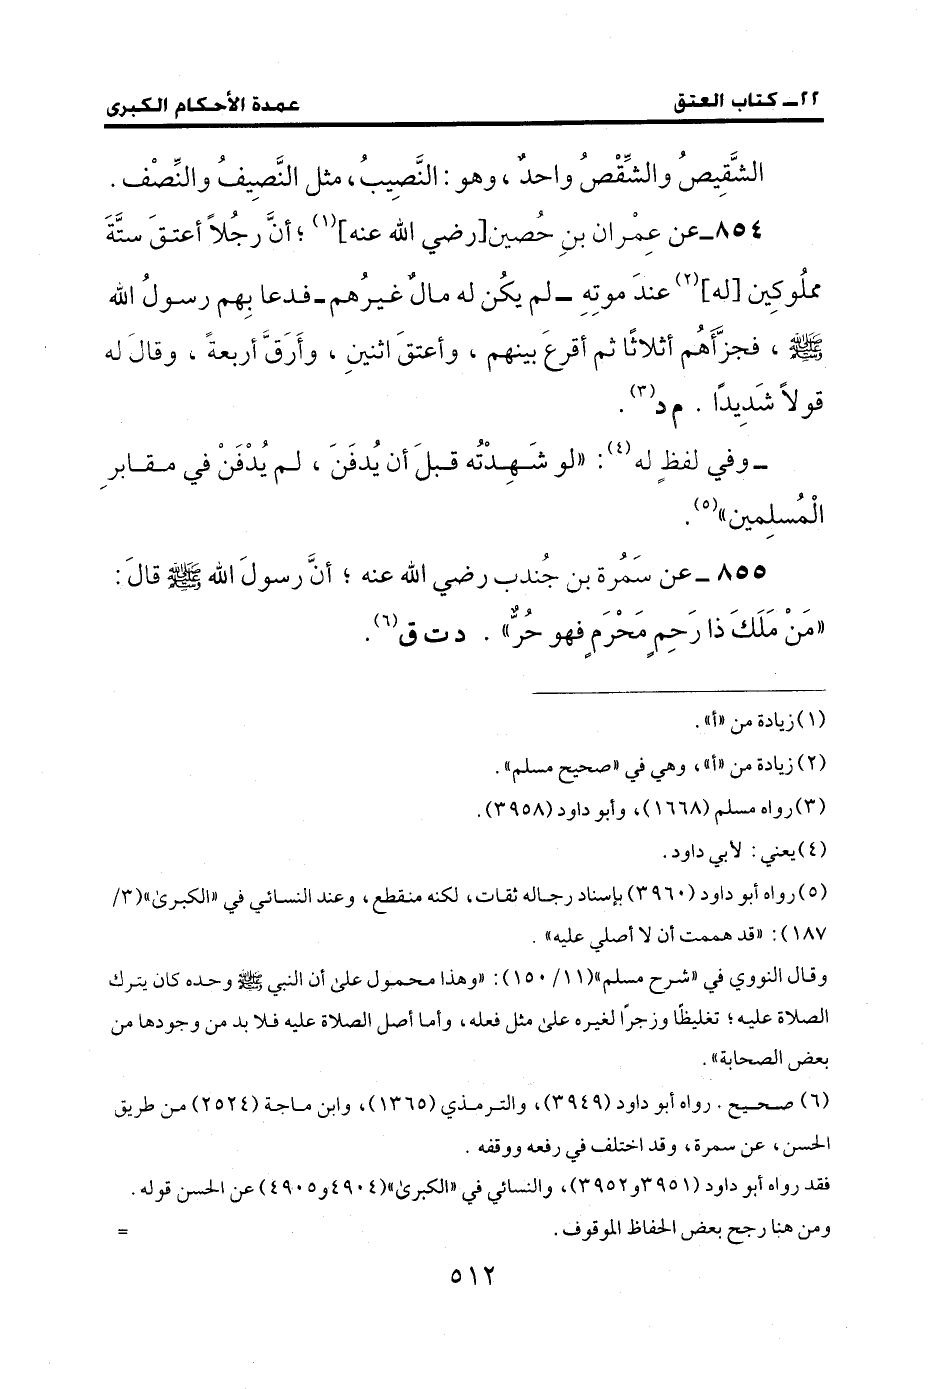 ٢٢ـ كتاب العتق
عمدة الأحكام الكبرى
الشَّقِيصُ والشِّقْصُ واحدٌ، وهو: النَّصِيبُ، مثل النَّصِيفُ والنِّصْف.
٨٥٤ـ عن عِمْران بنِ حُصين [رضي الله عنه](١)؛ أنَّ رجُلاً أعتقَ ستَّةَ
مملُوكِين [له](٢) عندَ موتِهِ ـ لم يكُن له مالٌ غيرُهم ـ فدعا بِهم رسولُ الله
ﷺ، فجزَّأَهُم أثلاثًا ثم أقرعَ بينهم، وأعتقَ اثنينِ، وأَرَقَّ أربعةً، وقالَ له
قولاً شَدِيدًا. م د(٣).
ـ وفي لفظٍ له(٤): «لو شَهِدْتُه قبلَ أن يُدفَنَ، لم يُدْفَنْ في مقابرِ
الْمُسلِمين»(٥).
٨٥٥ ـ عن سَمُرة بن جُندب رضي الله عنه؛ أنَّ رسولَ الله ﷺ قالَ:
«مَنْ مَلَكَ ذا رَحِمٍ مَحْرَمٍ فهو حُرٌّ». د ت ق(٦).
(١) زيادة من «أ».
(٢) زيادة من «أ»، وهي في «صحيح مسلم».
(٣) رواه مسلم (١٦٦٨)، وأبو داود (٣٩٥٨).
(٤) يعني: لأبي داود.
(٥) رواه أبو داود (٣٩٦٠) بإسناد رجاله ثقات، لكنه منقطع، وعند النسائي في «الكبرىٰ»(٣/
١٨٧): «قد هممت أن لا أصلي عليه».
وقال النووي في «شرح مسلم»(١١/ ١٥٠): «وهذا محمول علىٰ أن النبي ﷺ وحده كان يترك
الصلاة عليه؛ تغليظًا وزجرًا لغيره علىٰ مثل فعله، وأما أصل الصلاة عليه فلا بد من وجودها من
بعض الصحابة».
(٦) صحيح. رواه أبو داود (٣٩٤٩)، والترمذي (١٣٦٥)، وابن ماجة (٢٥٢٤) من طريق
الحسن، عن سمرة، وقد اختلف في رفعه ووقفه.
فقد رواه أبو داود (٣٩٥١ و٣٩٥٢)، والنسائي في «الكبرىٰ»(٤٩٠٤ و٤٩٠٥) عن الحسن قوله.
ومن هنا رجح بعض الحفاظ الموقوف. =
٥١٢